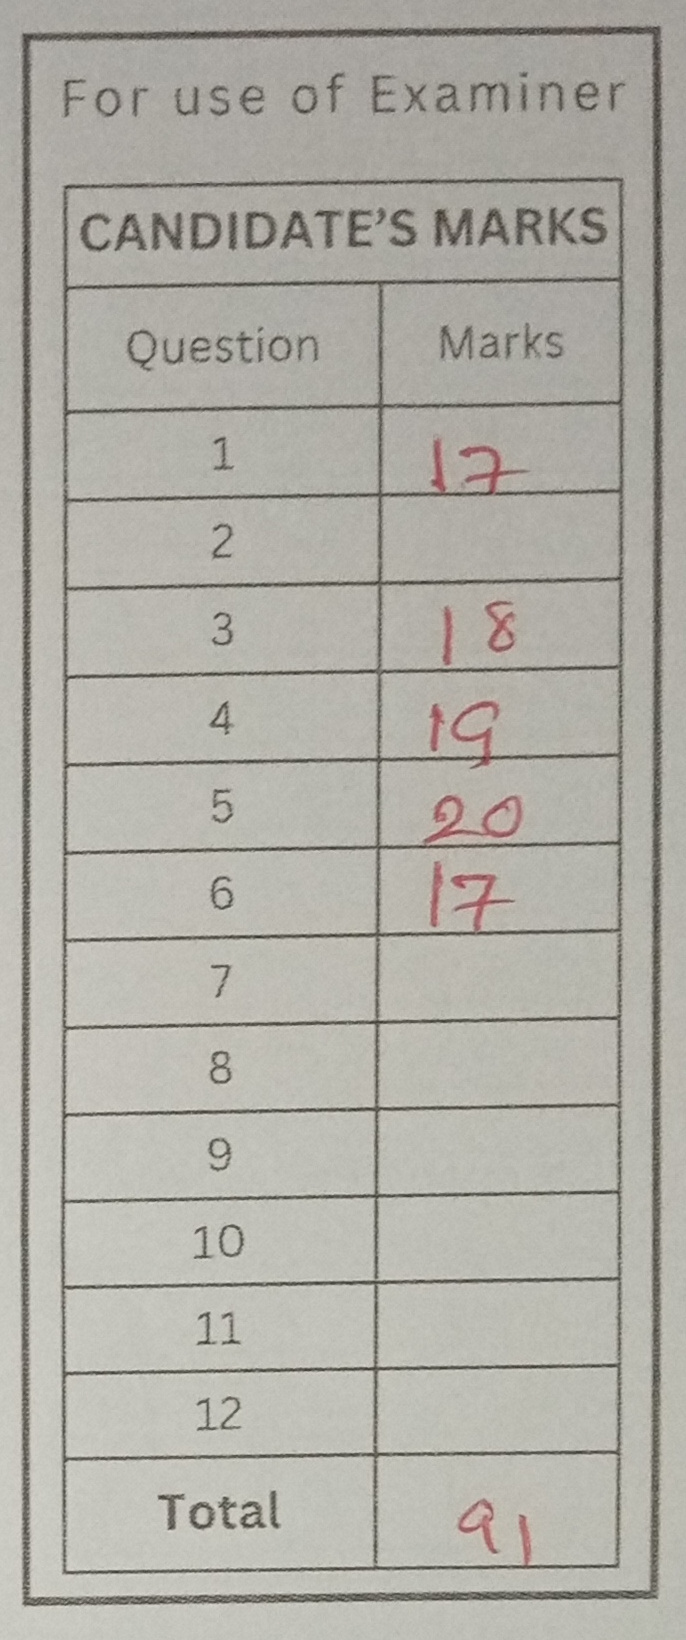 For use of Examiner
CANDIDATE'S MARKS
Question Marks
1 17
2
3 18
4 19
5 20
6 17
7
8
9
10
11
12
Total 91